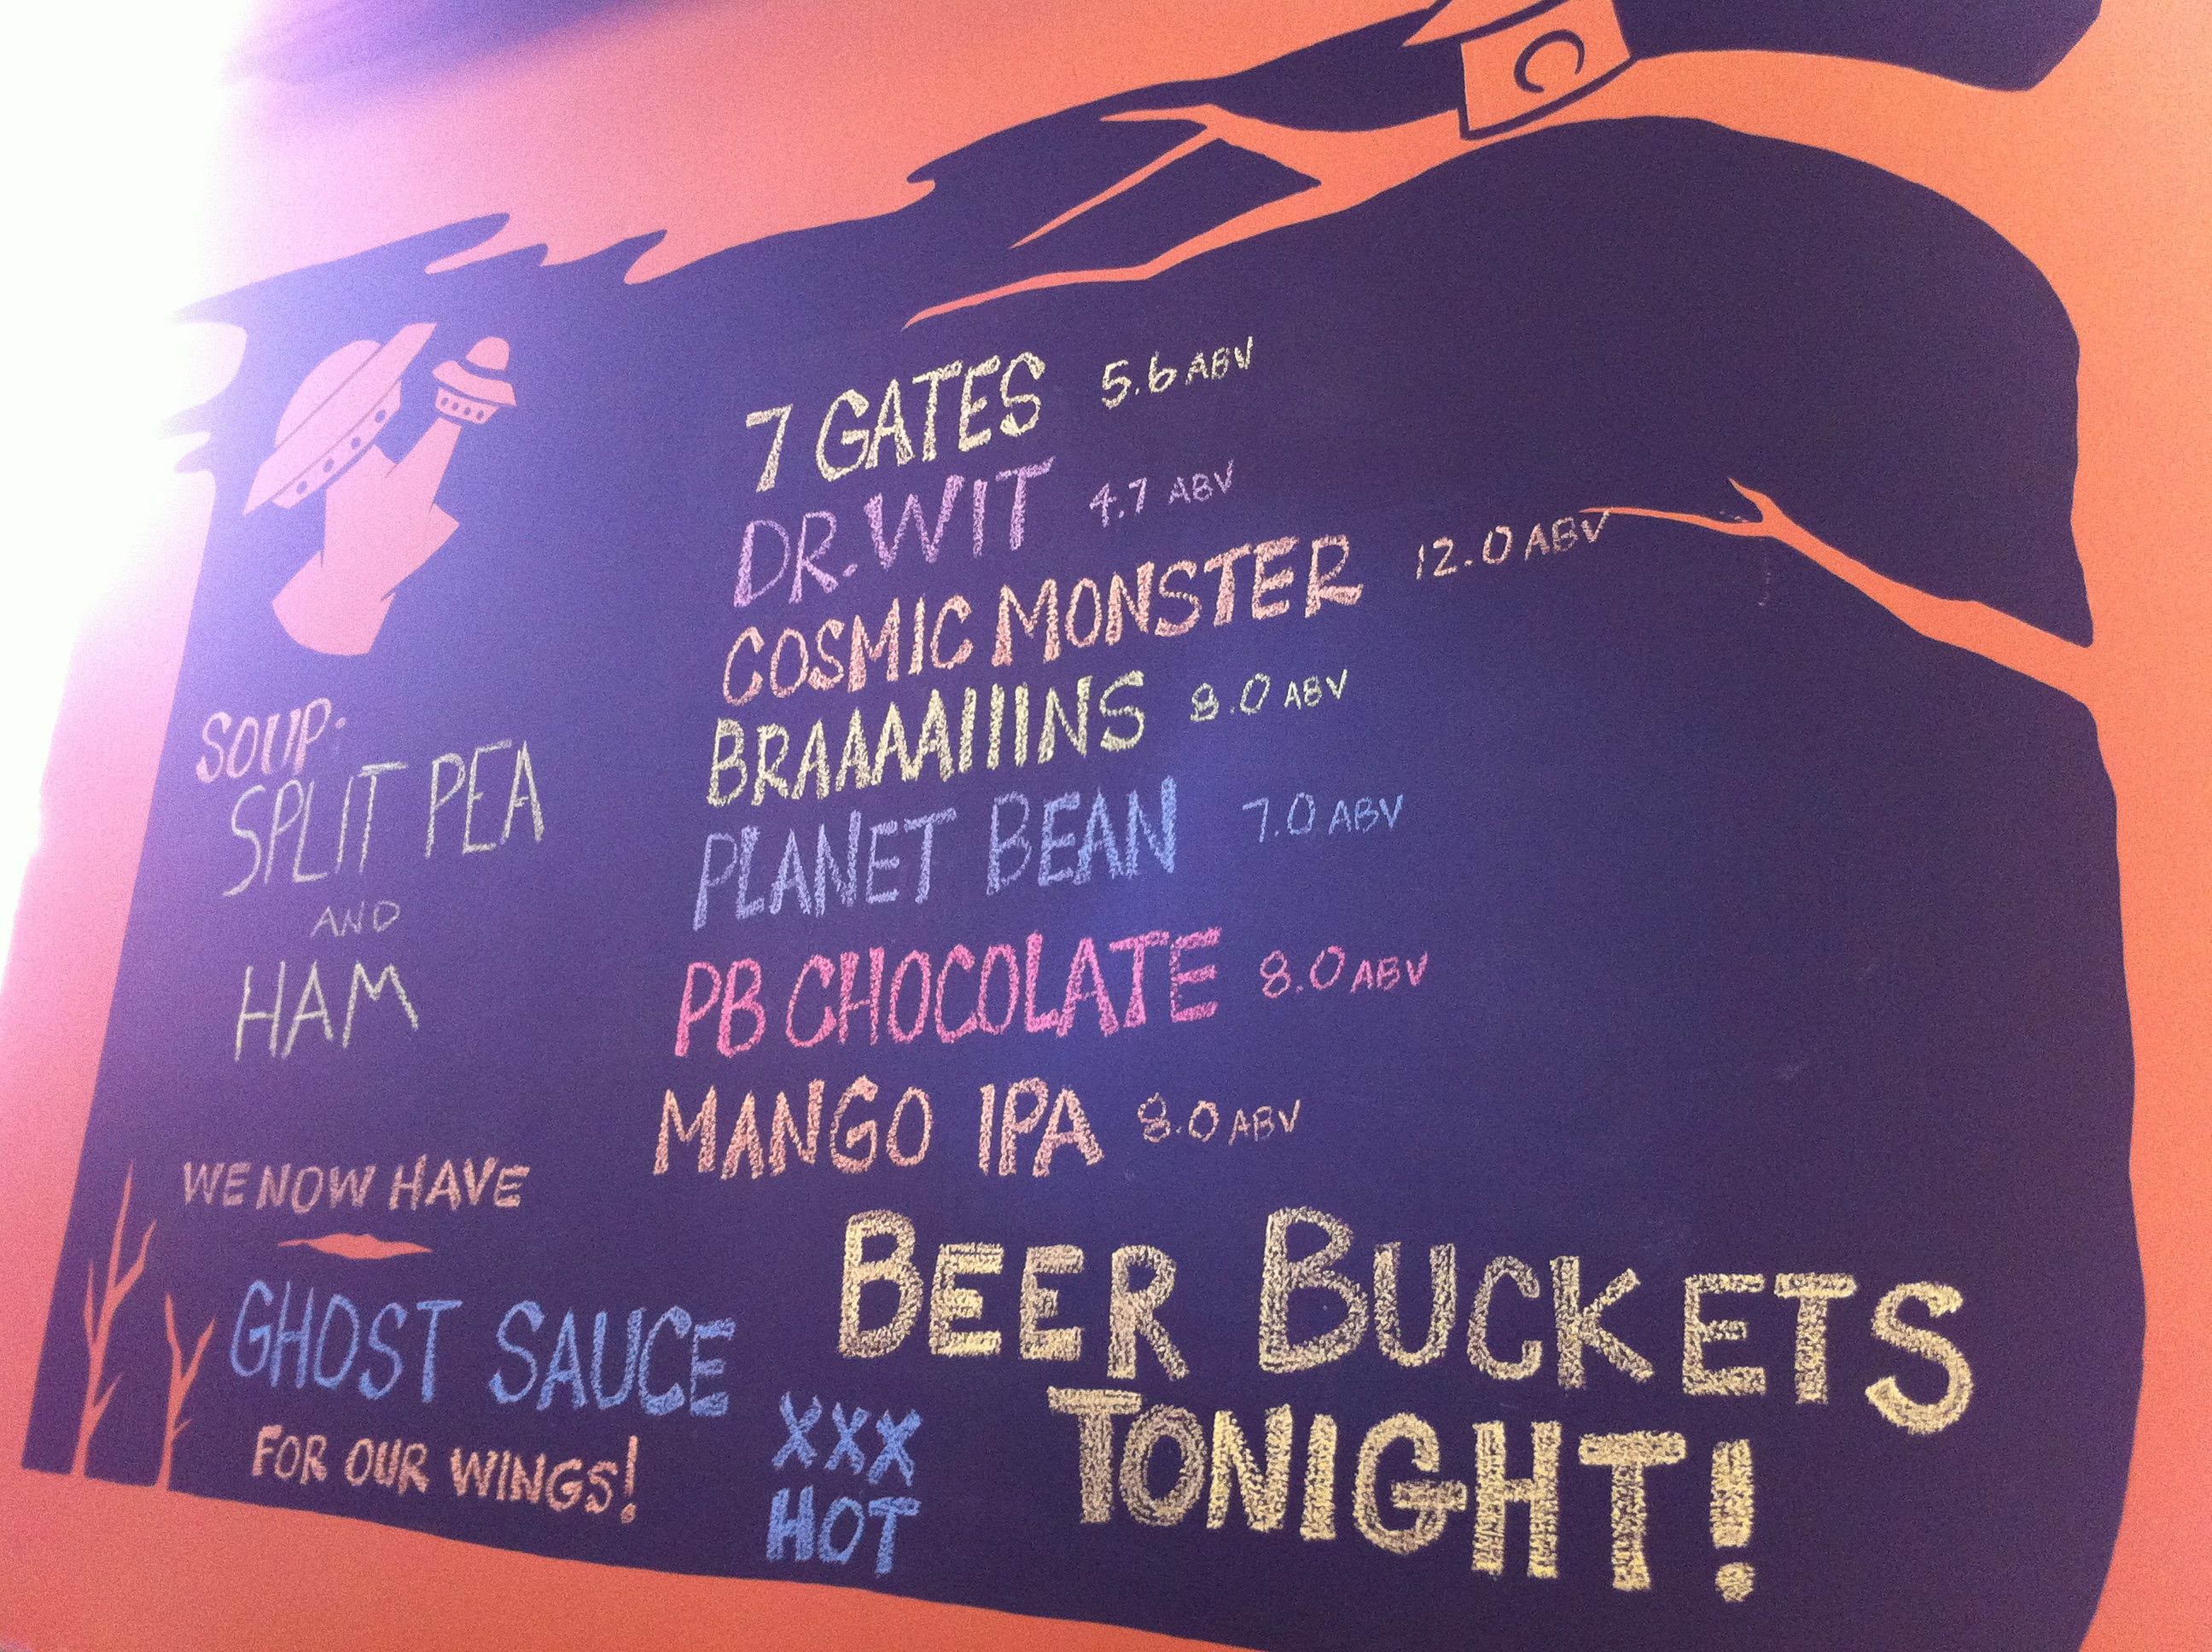 C
7 GATES 5.6 ABV
DR. WIT 4.7 ABV
COSMIC MONSTER 12.0 ABV
BRAAAAIIINS 8.0 ABV
PLANET BEAN 7.0 ABV
PB CHOCOLATE 8.0 ABV
MANGO IPA 8.0 ABV
SOUP:
SPLIT PEA
AND
HAM
WE NOW HAVE
GHOST SAUCE
FOR OUR WINGS!
XXX
HOT
BEER BUCKETS
TONIGHT!